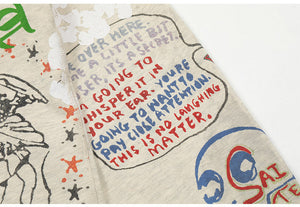 OVER HERE.
A LITTLE BIT
IT'S A SECRET.
I'M GOING TO
WHISPER IT IN
YOUR EAR. YOU'RE
GOING TO WANT TO
PAY CLOSE ATTENTION.
THIS IS NO LAUGHING
MATTER.
SAI